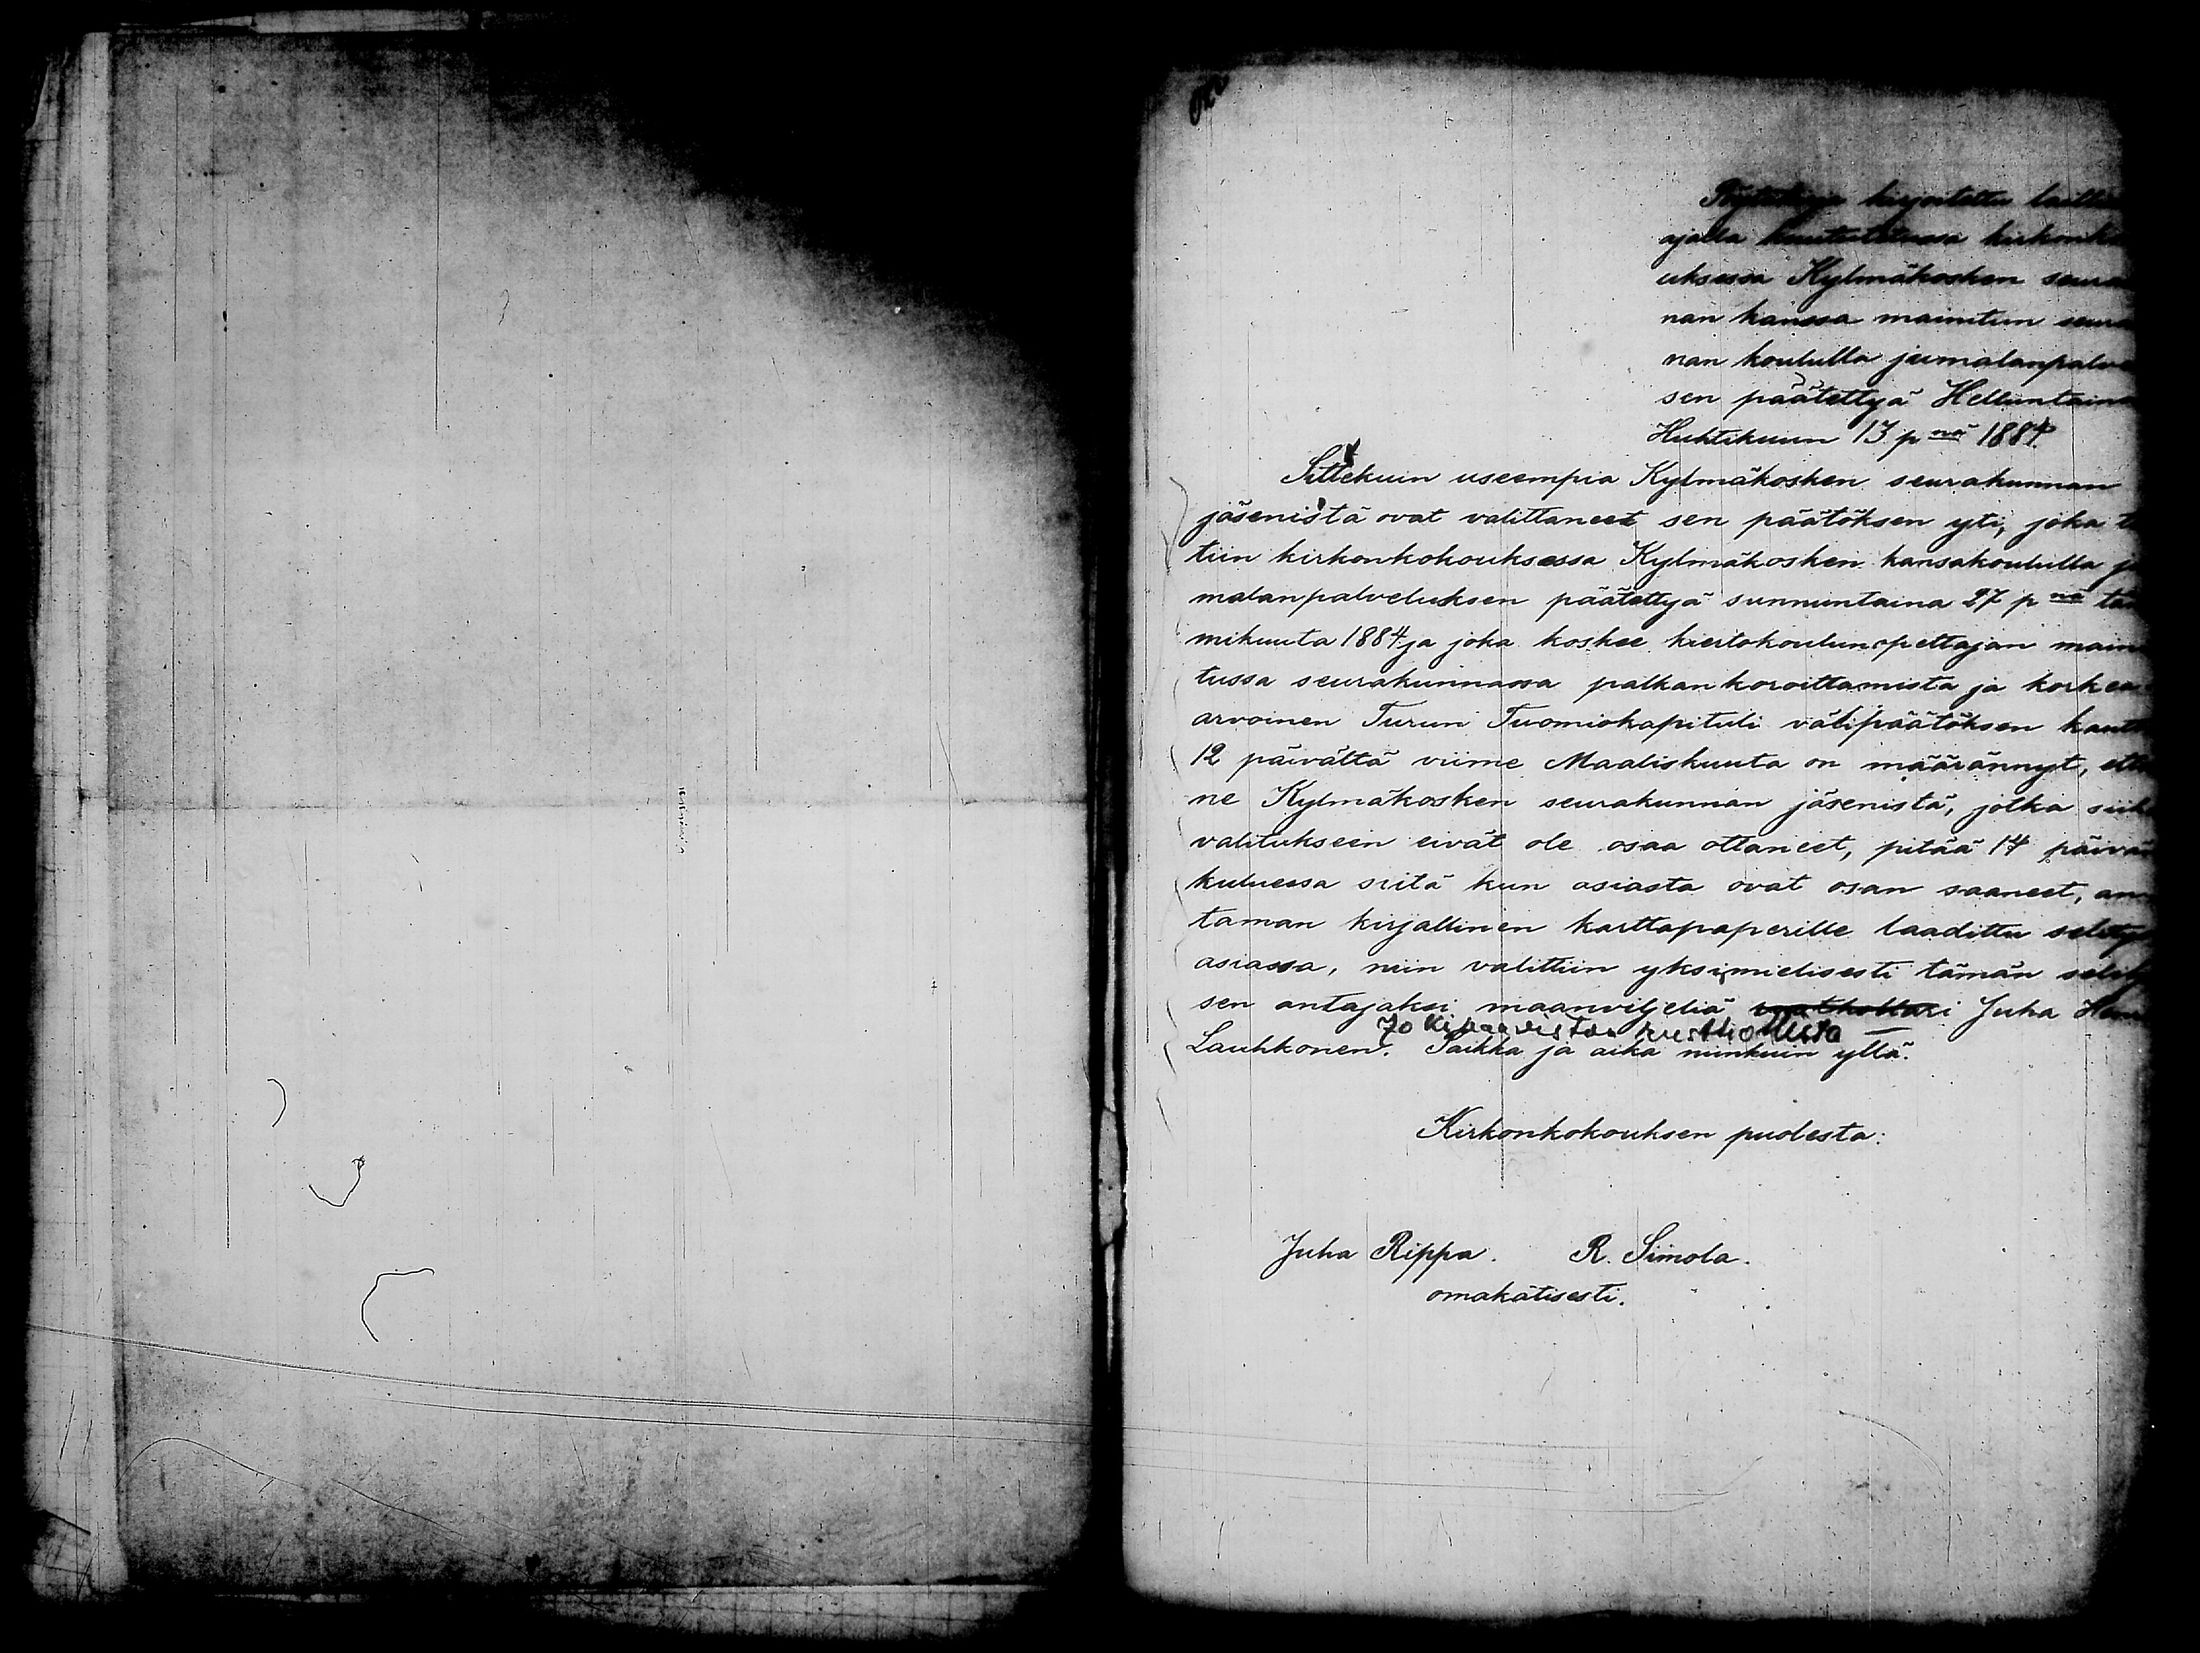 Pöytäkirja kirjoitettu
ajalla kuulutetussa
uksessa Kylmäkosken
nan kanssa mainitun
nan koululla
sen päätettyä
Huhtikuun 13 p nä 1884.
Sittekuin useempia Kylmäkosken seurakunnan
jäsenistä ovat valittaneet sen päätöksen yti, joka
tiin kirkonkokouksessa Kylmäkosken kansakoululla
malanpalveluksen päätettyä sunnuntaina 27 p nä
mikuuta 1884 ja joka koskee kiertokoulunopettajan
tussa seurakunnassa palkankoroittamista ja korkea
arvoinen Turun Tuomiokapituli välipäätöksen
12 päivältä viime Maaliskuuta on määrännyt,
ne Kylmäkosken seurakunnan jäsenistä, jotka
valitukseen eivät ole osaa ottaneet, pitää 14
kuluessa siitä kun asiasta ovat osan saaneet,
taman kirjallinen karttapaperille laadittu
asiassa, niin valittiin yksimielisesti tämän
sen antajaksi maanviljeliä Juha
Lauhkonen. Paikka ja aika niinkuin yllä.
Kirkonkokouksen puolesta:
Juha Rippa. R. Simola.
omakätisesti.